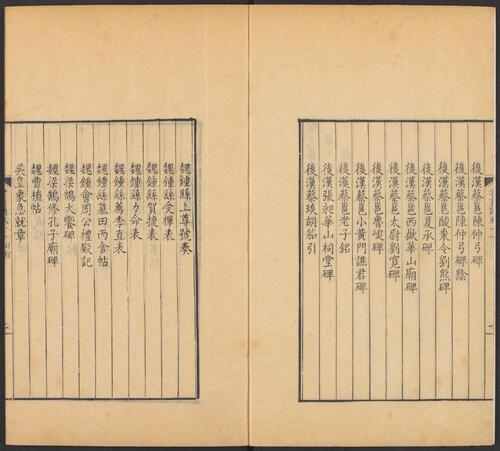 後漢蔡邕陳仲弓碑
後漢蔡邕陳仲弓碑陰
後漢蔡邕酸棗令劉熊碑
後漢蔡邕夏承碑
後漢蔡邕西嶽華山廟碑
後漢蔡邕太尉劉寬碑
後漢蔡邕魯峻碑
後漢蔡邕小黃門譙君碑
後漢蔡邕老子銘
後漢張昶華山祠堂碑
後漢蔡琰胡笳引
魏鍾繇上尊號奏
魏鍾繇受禪表
魏鍾繇賀捷表
魏鍾繇力命表
魏鍾繇薦季直表
魏鍾繇墓田丙舍帖
魏鍾會周公禮殿記
魏梁鵠大饗碑
魏梁鵠修孔子廟碑
魏曹植帖
吳皇象急就章